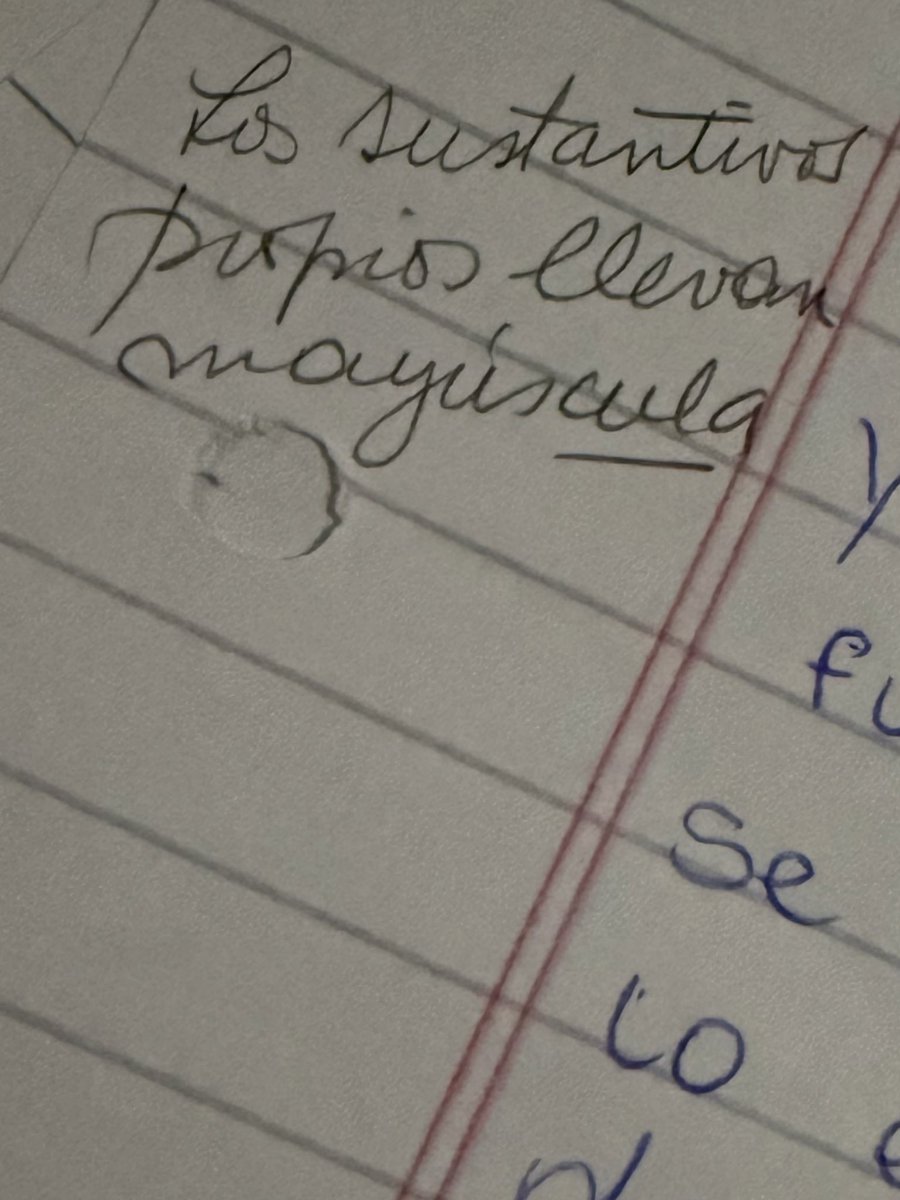 Los sustantivos
propios llevan
mayúscula
y
fu
se
lo